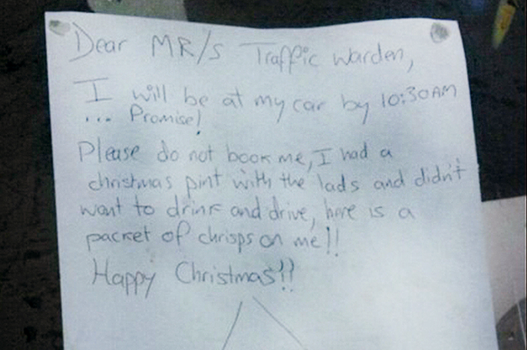 Dear MR/S Traffic Warden,
I will be at my car by 10:30AM
... Promise!
Please do not book me, I had a
christmas pint with the lads and didn't
want to drink and drive, here is a
packet of chrisps on me!!
Happy Christmas!!